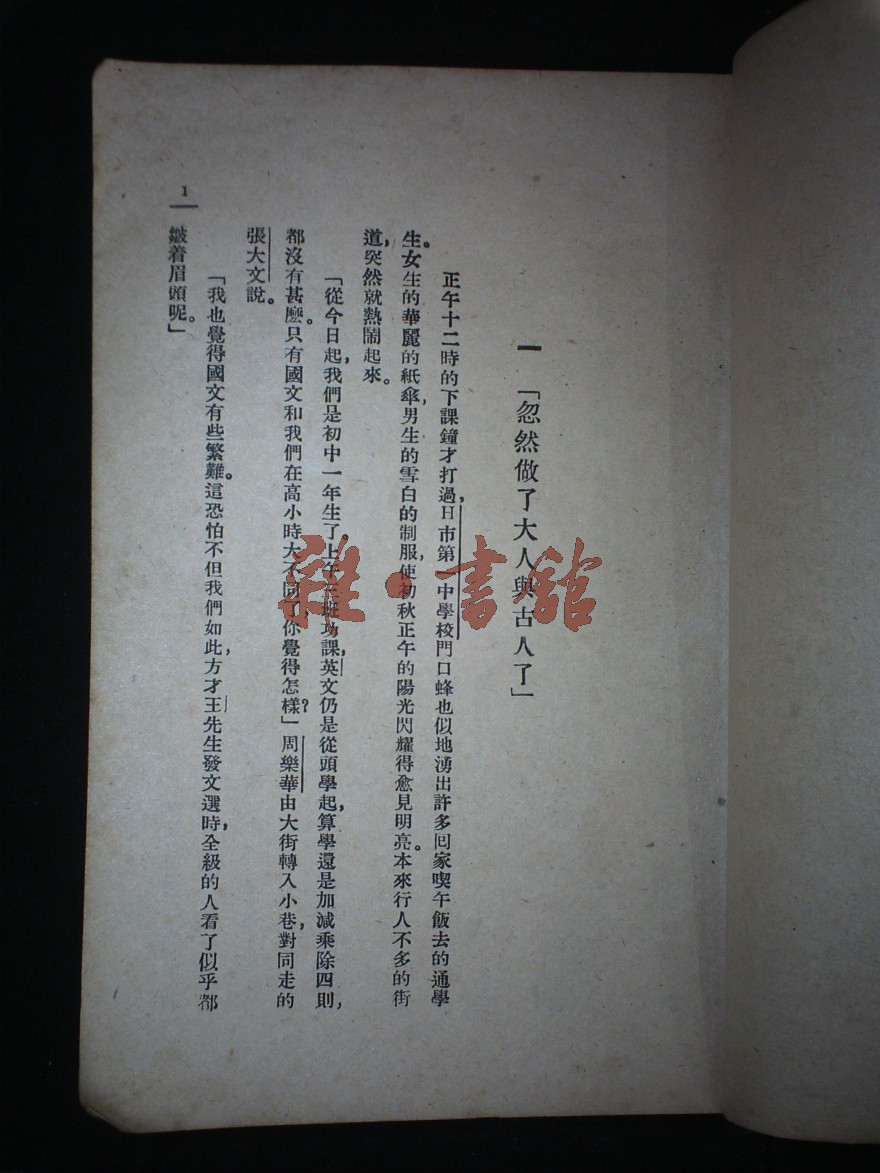 一　「忽然做了大人與古人了」
正午十二時的下課鐘才打過，H市第一中學校門口蜂也似地湧出許多回家喫午飯去的通學
生。女生的華麗的紙傘，男生的雪白的制服，使初秋正午的陽光閃耀得愈見明亮。本來行人不多的街
道，突然就熱鬧起來。
「從今日起，我們是初中一年生了。上午三班功課，英文仍是從頭學起，算學還是加減乘除四則，
都沒有甚麼。只有國文和我們在高小時大不同了，你覺得怎樣？」周樂華由大街轉入小巷，對同走的
張大文說。
「我也覺得國文有些繁難。這恐怕不但我們如此，方才王先生發文選時，全級的人看了似乎都
皺着眉頭呢。」
1
雜·書館